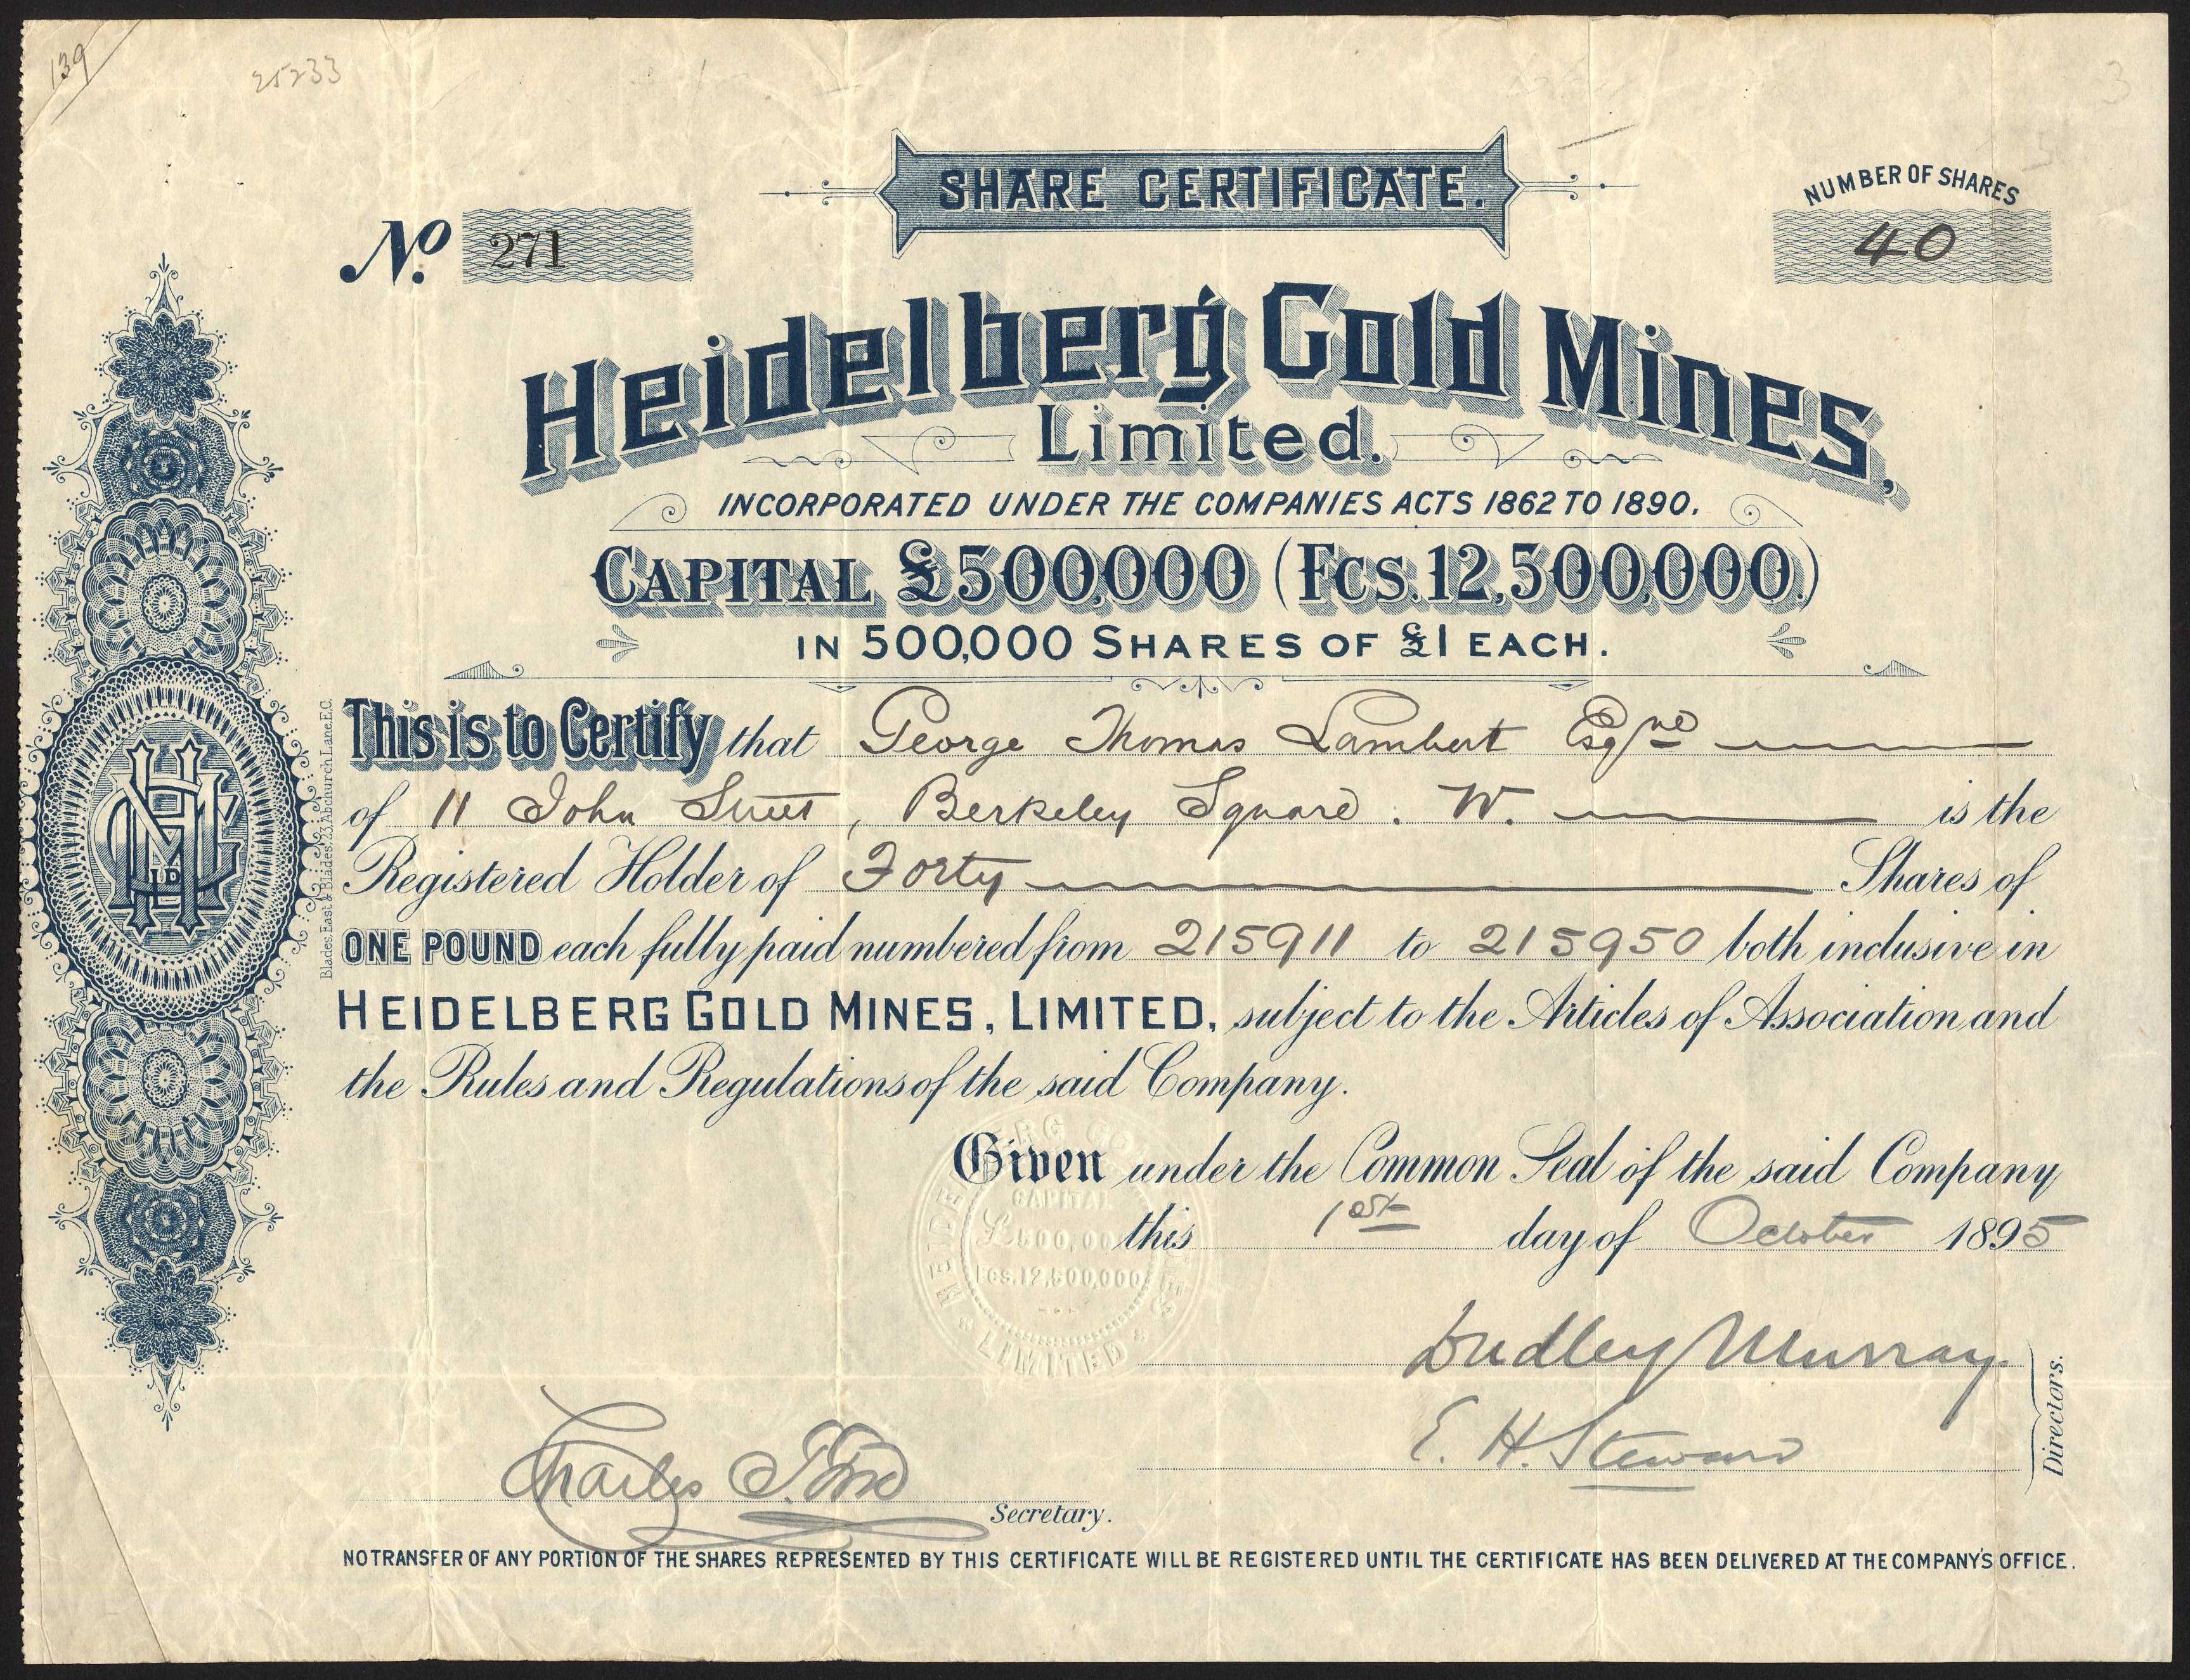 139
25233
3
SHARE CERTIFICATE.
No. 271
NUMBER OF SHARES
40
Heidelberg Gold Mines,
Limited.
INCORPORATED UNDER THE COMPANIES ACTS 1862 TO 1890.
CAPITAL £500,000 (FCS. 12,500,000.)
IN 500,000 SHARES OF £1 EACH.
This is to Certify that George Thomas Lambert Esqre
of 11 John Street, Berkeley Square. W. is the
Registered Holder of Forty Shares of
ONE POUND each fully paid numbered from 215911 to 215950 both inclusive in
HEIDELBERG GOLD MINES, LIMITED, subject to the Articles of Association and
the Rules and Regulations of the said Company.
Given under the Common Seal of the said Company
this 1st day of October 1895
HEIDELBERG GOLD MINES LIMITED
CAPITAL
£500,000
FCS.12,500,000
Dudley Murray.
E. H. Steward
Directors.
Charles
Secretary.
NO TRANSFER OF ANY PORTION OF THE SHARES REPRESENTED BY THIS CERTIFICATE WILL BE REGISTERED UNTIL THE CERTIFICATE HAS BEEN DELIVERED AT THE COMPANY'S OFFICE.
Blades, East & Blades, 23, Abchurch Lane, E.C.